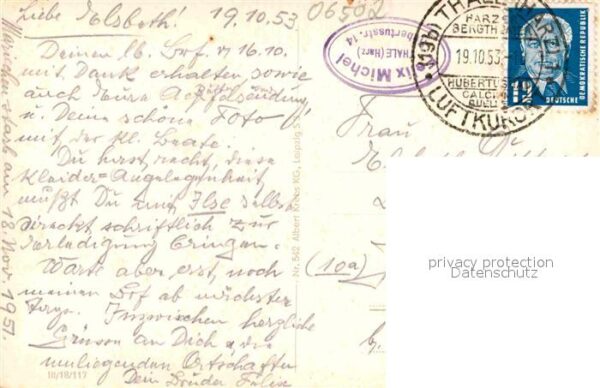 Liebe Elsbeth! 19.10.53
Deinen lb. Brf. v. 16.10.
mit Dank erhalten, sowie
auch Eure
u. Deine schöne Foto
mit der kl. Beate.
Du hast recht, diese
Kleider=Angelegenheit
mußt Du mit Ilse selbst
direkt, schriftlich zur
Erledigung bringen.
Warte aber erst, noch
meinen Brf ab nächster
Tage. Inzwischen herzliche
Grüsse an Dich & die
umliegenden Ortschaften
Dein Bruder Felix
18. Nov. 1951.
10/18/117
Nr. 542 Albert KG., Leipzig
06502
Felix Michel
THALE (Harz)
Hubertusstr. 14
(19b) THALE (HARZ)
HARZER
BERGTHEATER
19.10.53
HUBERTUS
LUFTKURORT
12
DEUTSCHE DEMOKRATISCHE REPUBLIK
Frau
(10a)
privacy protection
Datenschutz